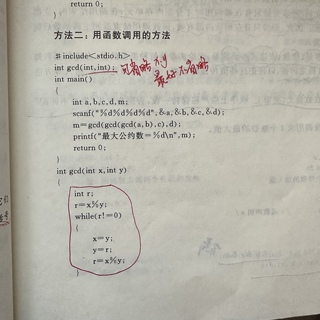 方法二：用函数调用的方法
#include<stdio.h>
int gcd(int,int); 可省略
最好不省略
int main()
{
int a,b,c,d,m;
scanf("%d%d%d%d",&a,&b,&c,&d);
m=gcd(gcd(gcd(a,b),c),d);
printf("最大公约数=%d\n",m);
return 0;
}
int gcd(int x,int y)
{
int r;
r=x%y;
while(r!=0)
{
x=y;
y=r;
r=x%y;